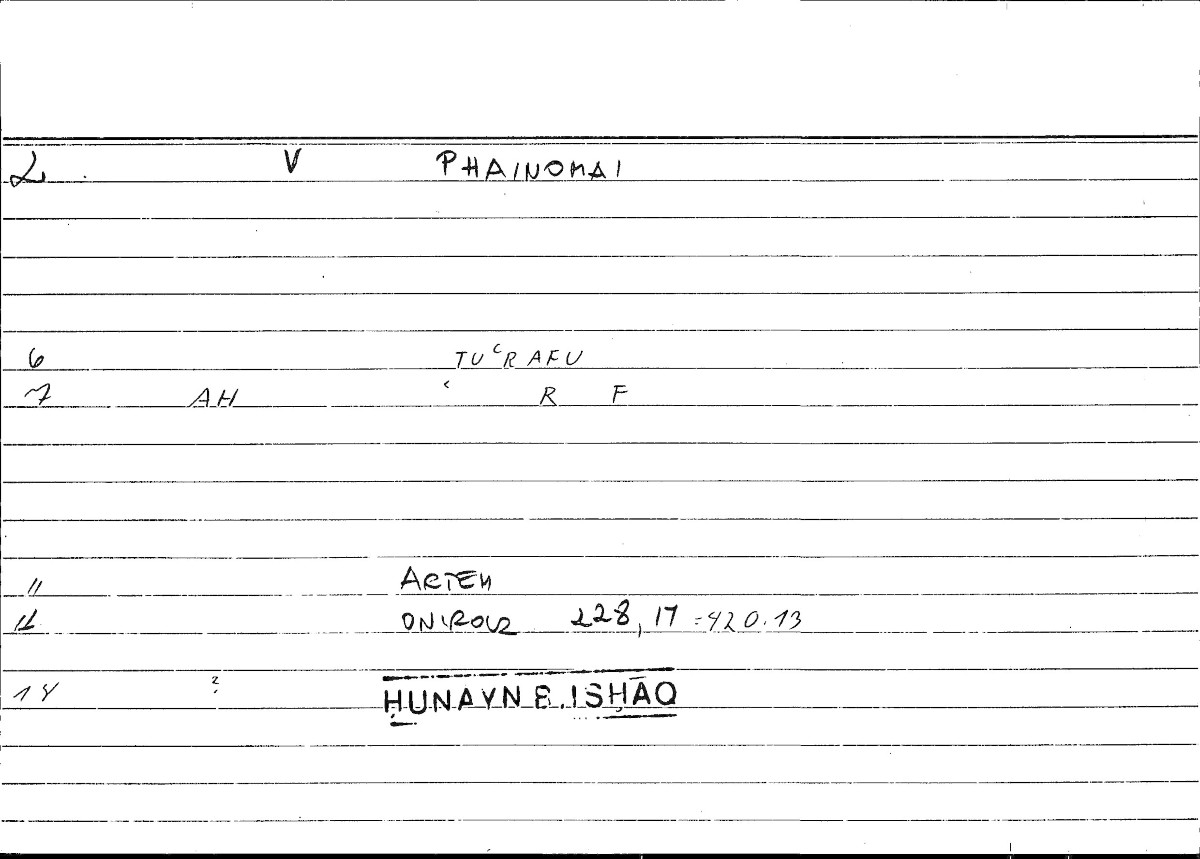 2. V PHAINOMAI
6 TUʿRAFU
7 AH ʿ R F
11 ARTEM
12 ONIROCR 228,17 =420.13
14 ? ḤUNAYN B. ISḤĀQ